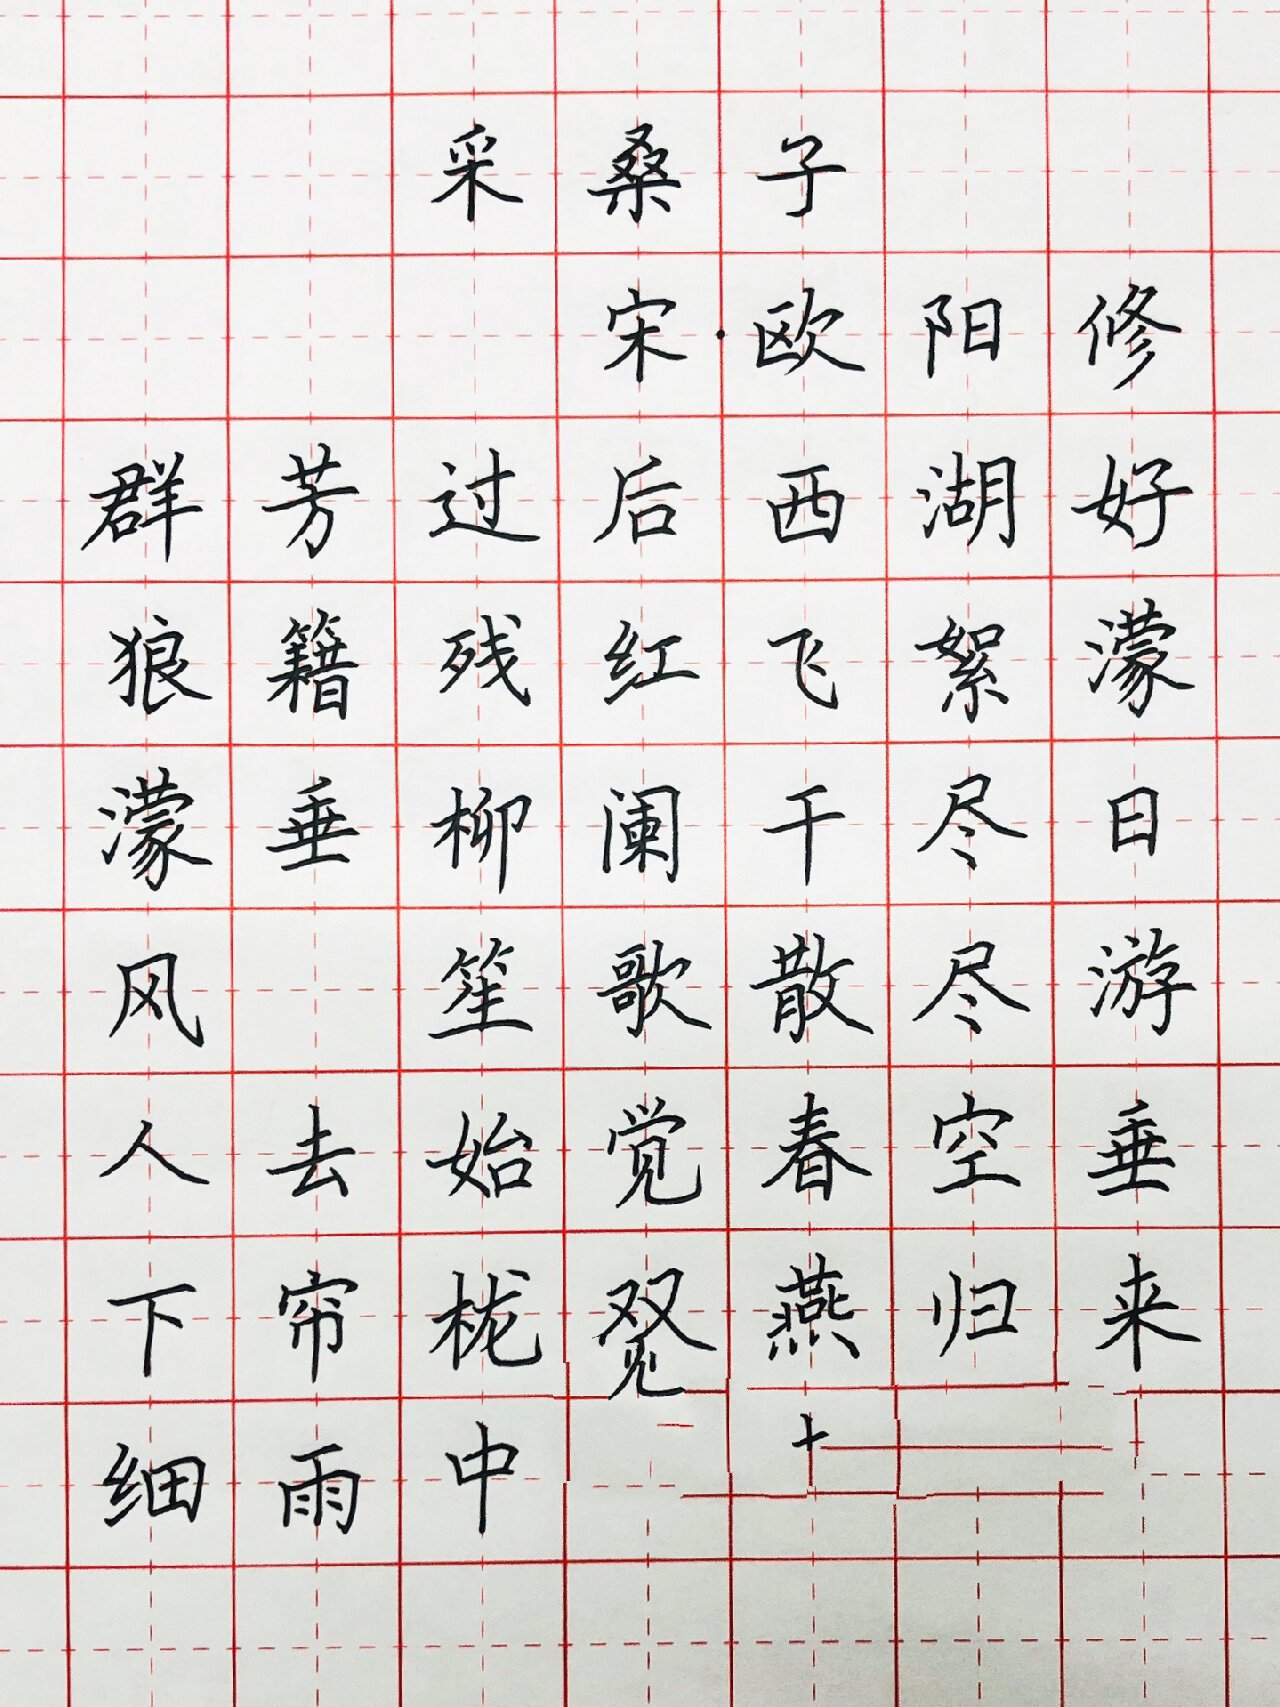 采桑子
宋·欧阳修
群芳过后西湖好
狼籍残红飞絮濛
濛垂柳阑干尽日
风 笙歌散尽游
人去始觉春空垂
下帘栊双燕归来
细雨中